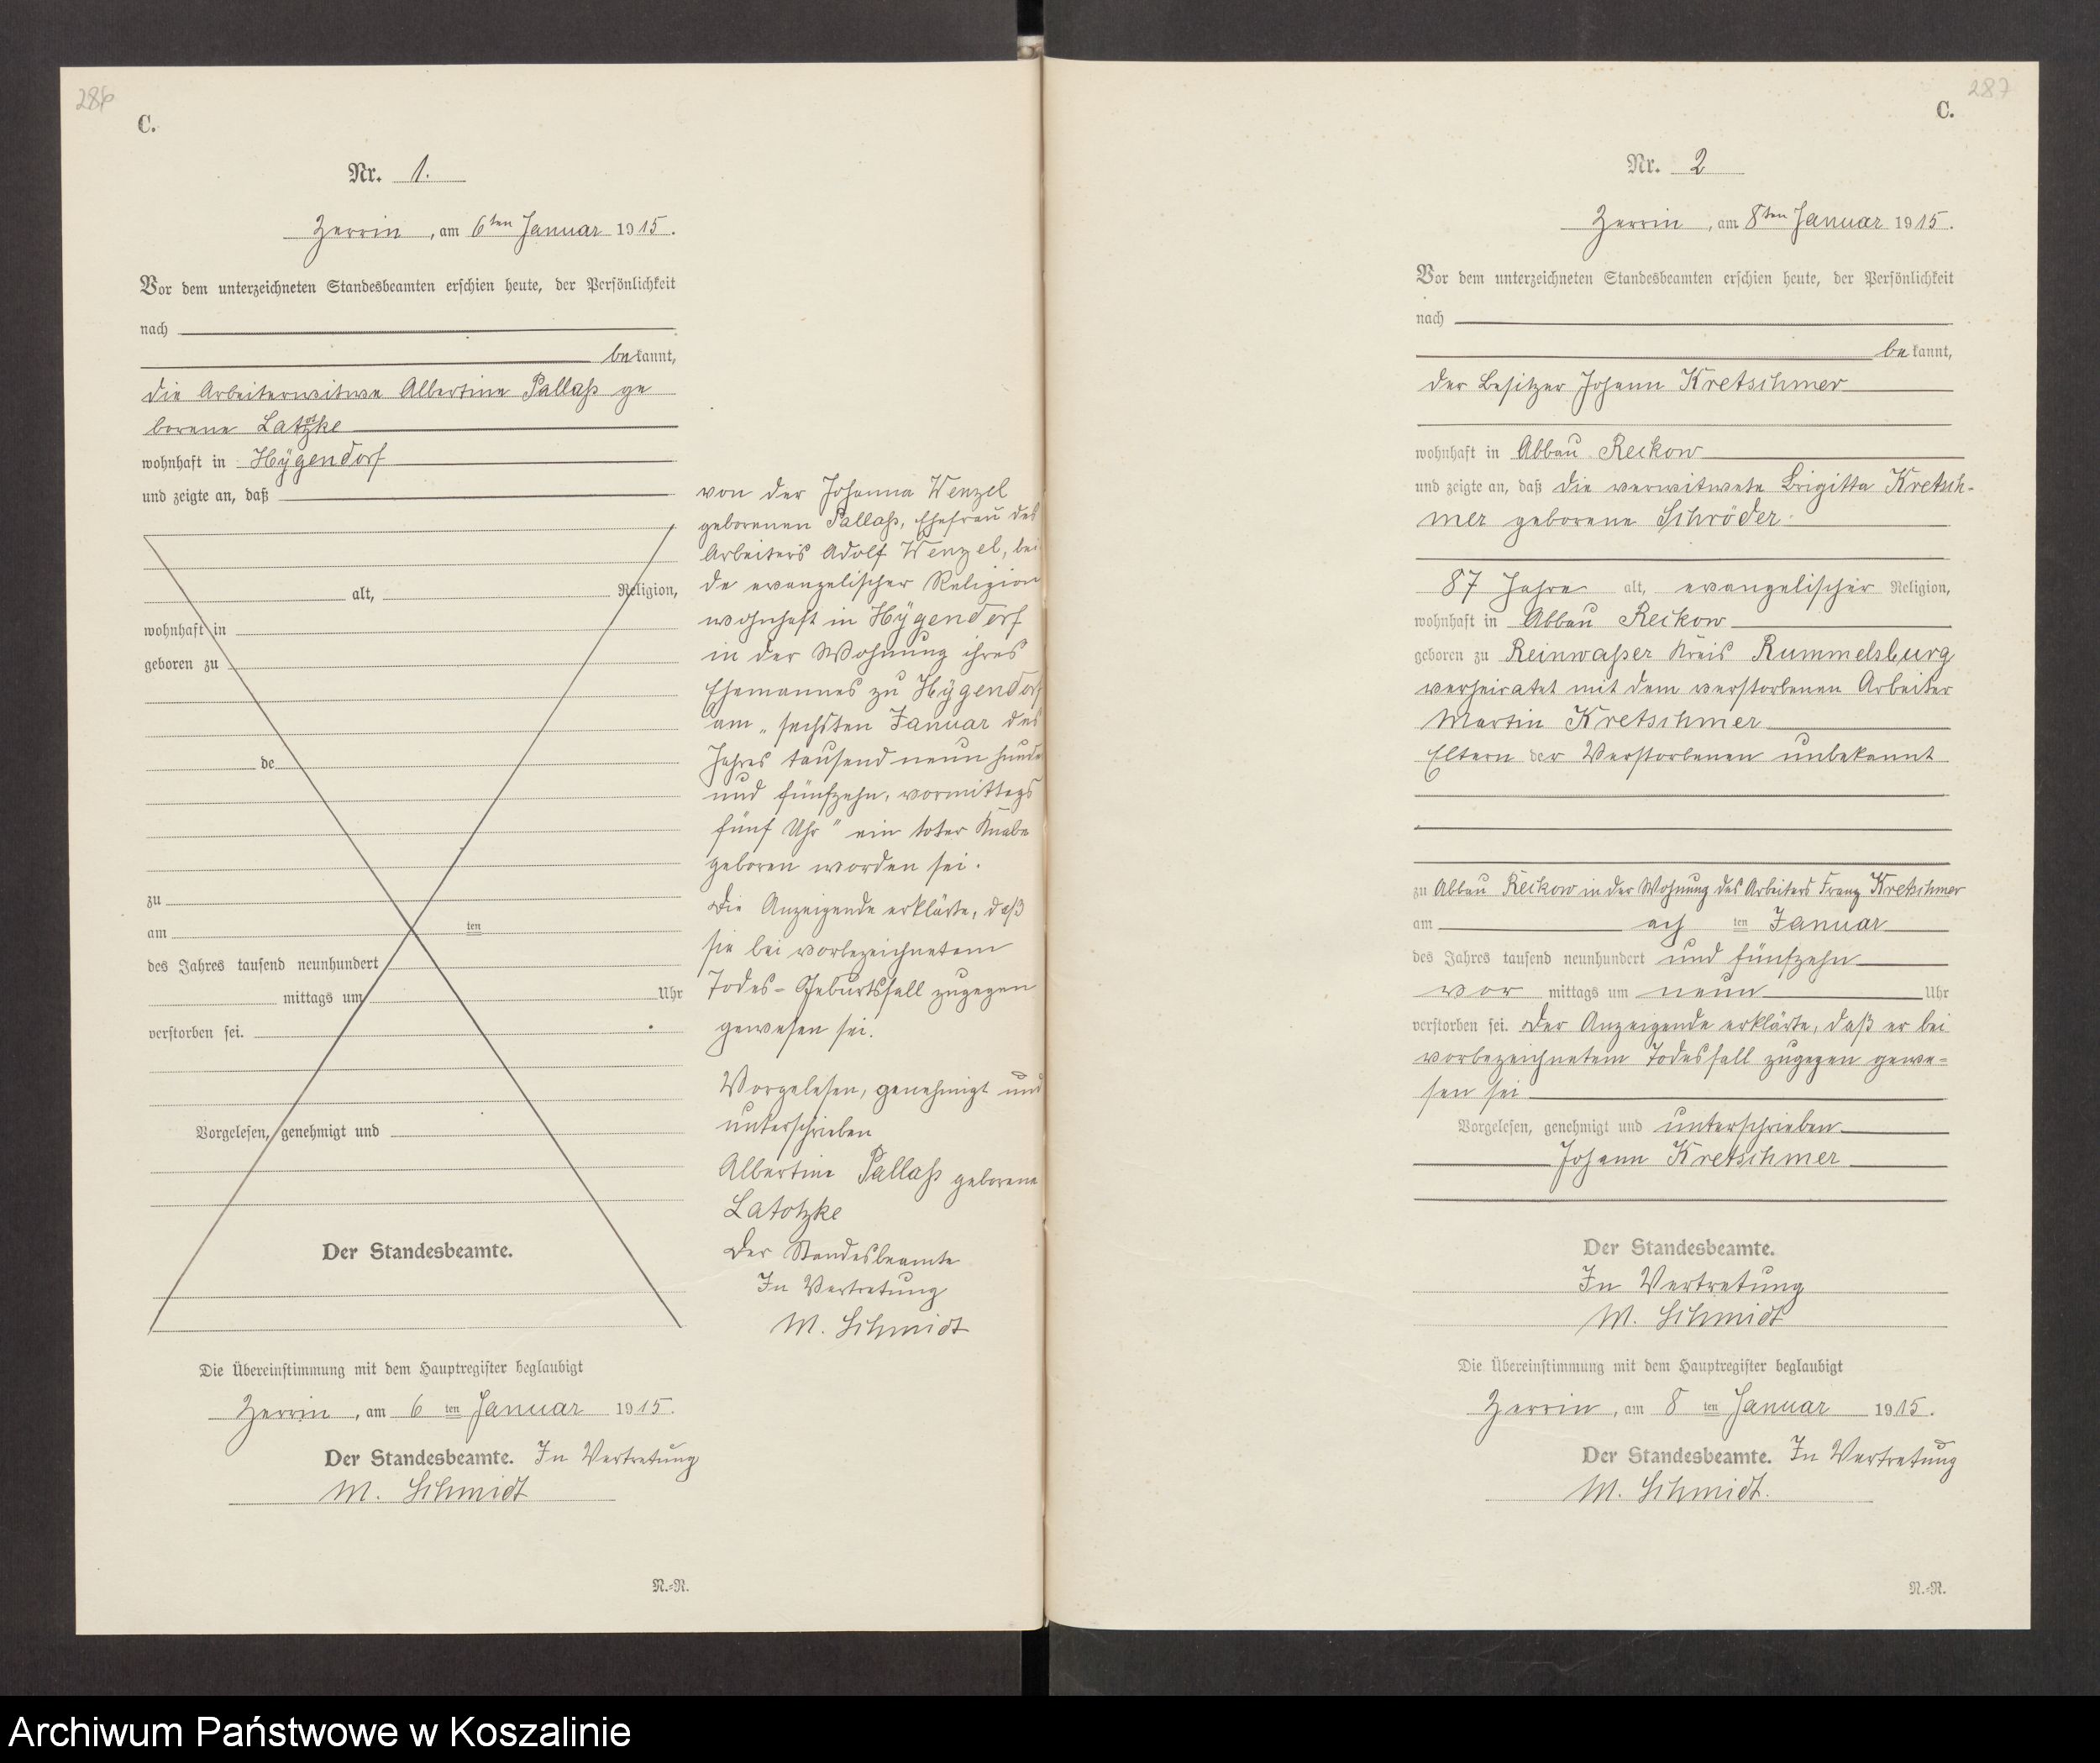 286
C.
Nr. 1.
Zerrin, am 6ten Januar 1915.
Vor dem unterzeichneten Standesbeamten erschien heute, der Persönlichkeit
nach
bekannt,
die Arbeiterwitwe Albertine Pallaß ge
borene Latotzke
wohnhaft in Hÿgendorf
und zeigte an, daß
alt, Religion,
wohnhaft in
geboren zu
de
zu
am ten
des Jahres tausend neunhundert
mittags um Uhr
verstorben sei.
Vorgelesen, genehmigt und
Der Standesbeamte.
von der Johanna Wenzel
geborenen Pallaß, Ehefrau des
Arbeiters Adolf Wenzel, bei
de evangelischer Religion
wohnhaft in Hÿgendorf
in der Wohnung ihres
Ehemannes zu Hÿgendorf
am „sechsten Januar des
Jahres tausend neun hundert
und fünfzehn, vormittags
fünf Uhr" ein toter Knabe
geboren worden sei.
Die Anzeigende erklärte, daß
sie bei vorbezeichnetem
Todes-Geburtsfall zugegen
gewesen sei.
Vorgelesen, genehmigt und
unterschrieben
Albertine Pallaß geborene
Latotzke
Der Standesbeamte
In Vertretung
M. Schmidt
Die Übereinstimmung mit dem Hauptregister beglaubigt
Zerrin, am 6 ten Januar 1915.
Der Standesbeamte. In Vertretung
M. Schmidt
N.-N.
287
C.
Nr. 2
Zerrin, am 8ten Januar 1915.
Vor dem unterzeichneten Standesbeamten erschien heute, der Persönlichkeit
nach
bekannt,
der Besitzer Johann Kretschmer
wohnhaft in Abbau Reckow
und zeigte an, daß die verwitwete Brigitta Kretsch-
mer geborene Schröder
87 Jahre alt, evangelischer Religion,
wohnhaft in Abbau Reckow
geboren zu Reinwaßer Kreis Rummelsburg
verheiratet mit dem verstorbenen Arbeiter
Martin Kretschmer
Eltern der Verstorbenen unbekannt
zu Abbau Reckow in der Wohnung des Arbeiters Franz Kretschmer
am ach ten Januar
des Jahres tausend neunhundert und fünfzehn
vor mittags um neun Uhr
verstorben sei. Der Anzeigende erklärte, daß er bei
vorbezeichnetem Todesfall zugegen gewe=
sen sei
Vorgelesen, genehmigt und unterschrieben
Johann Kretschmer
Der Standesbeamte.
In Vertretung
M. Schmidt
Die Übereinstimmung mit dem Hauptregister beglaubigt
Zerrin, am 8 ten Januar 1915.
Der Standesbeamte. In Vertretung
M. Schmidt.
N.-N.
Archiwum Państwowe w Koszalinie